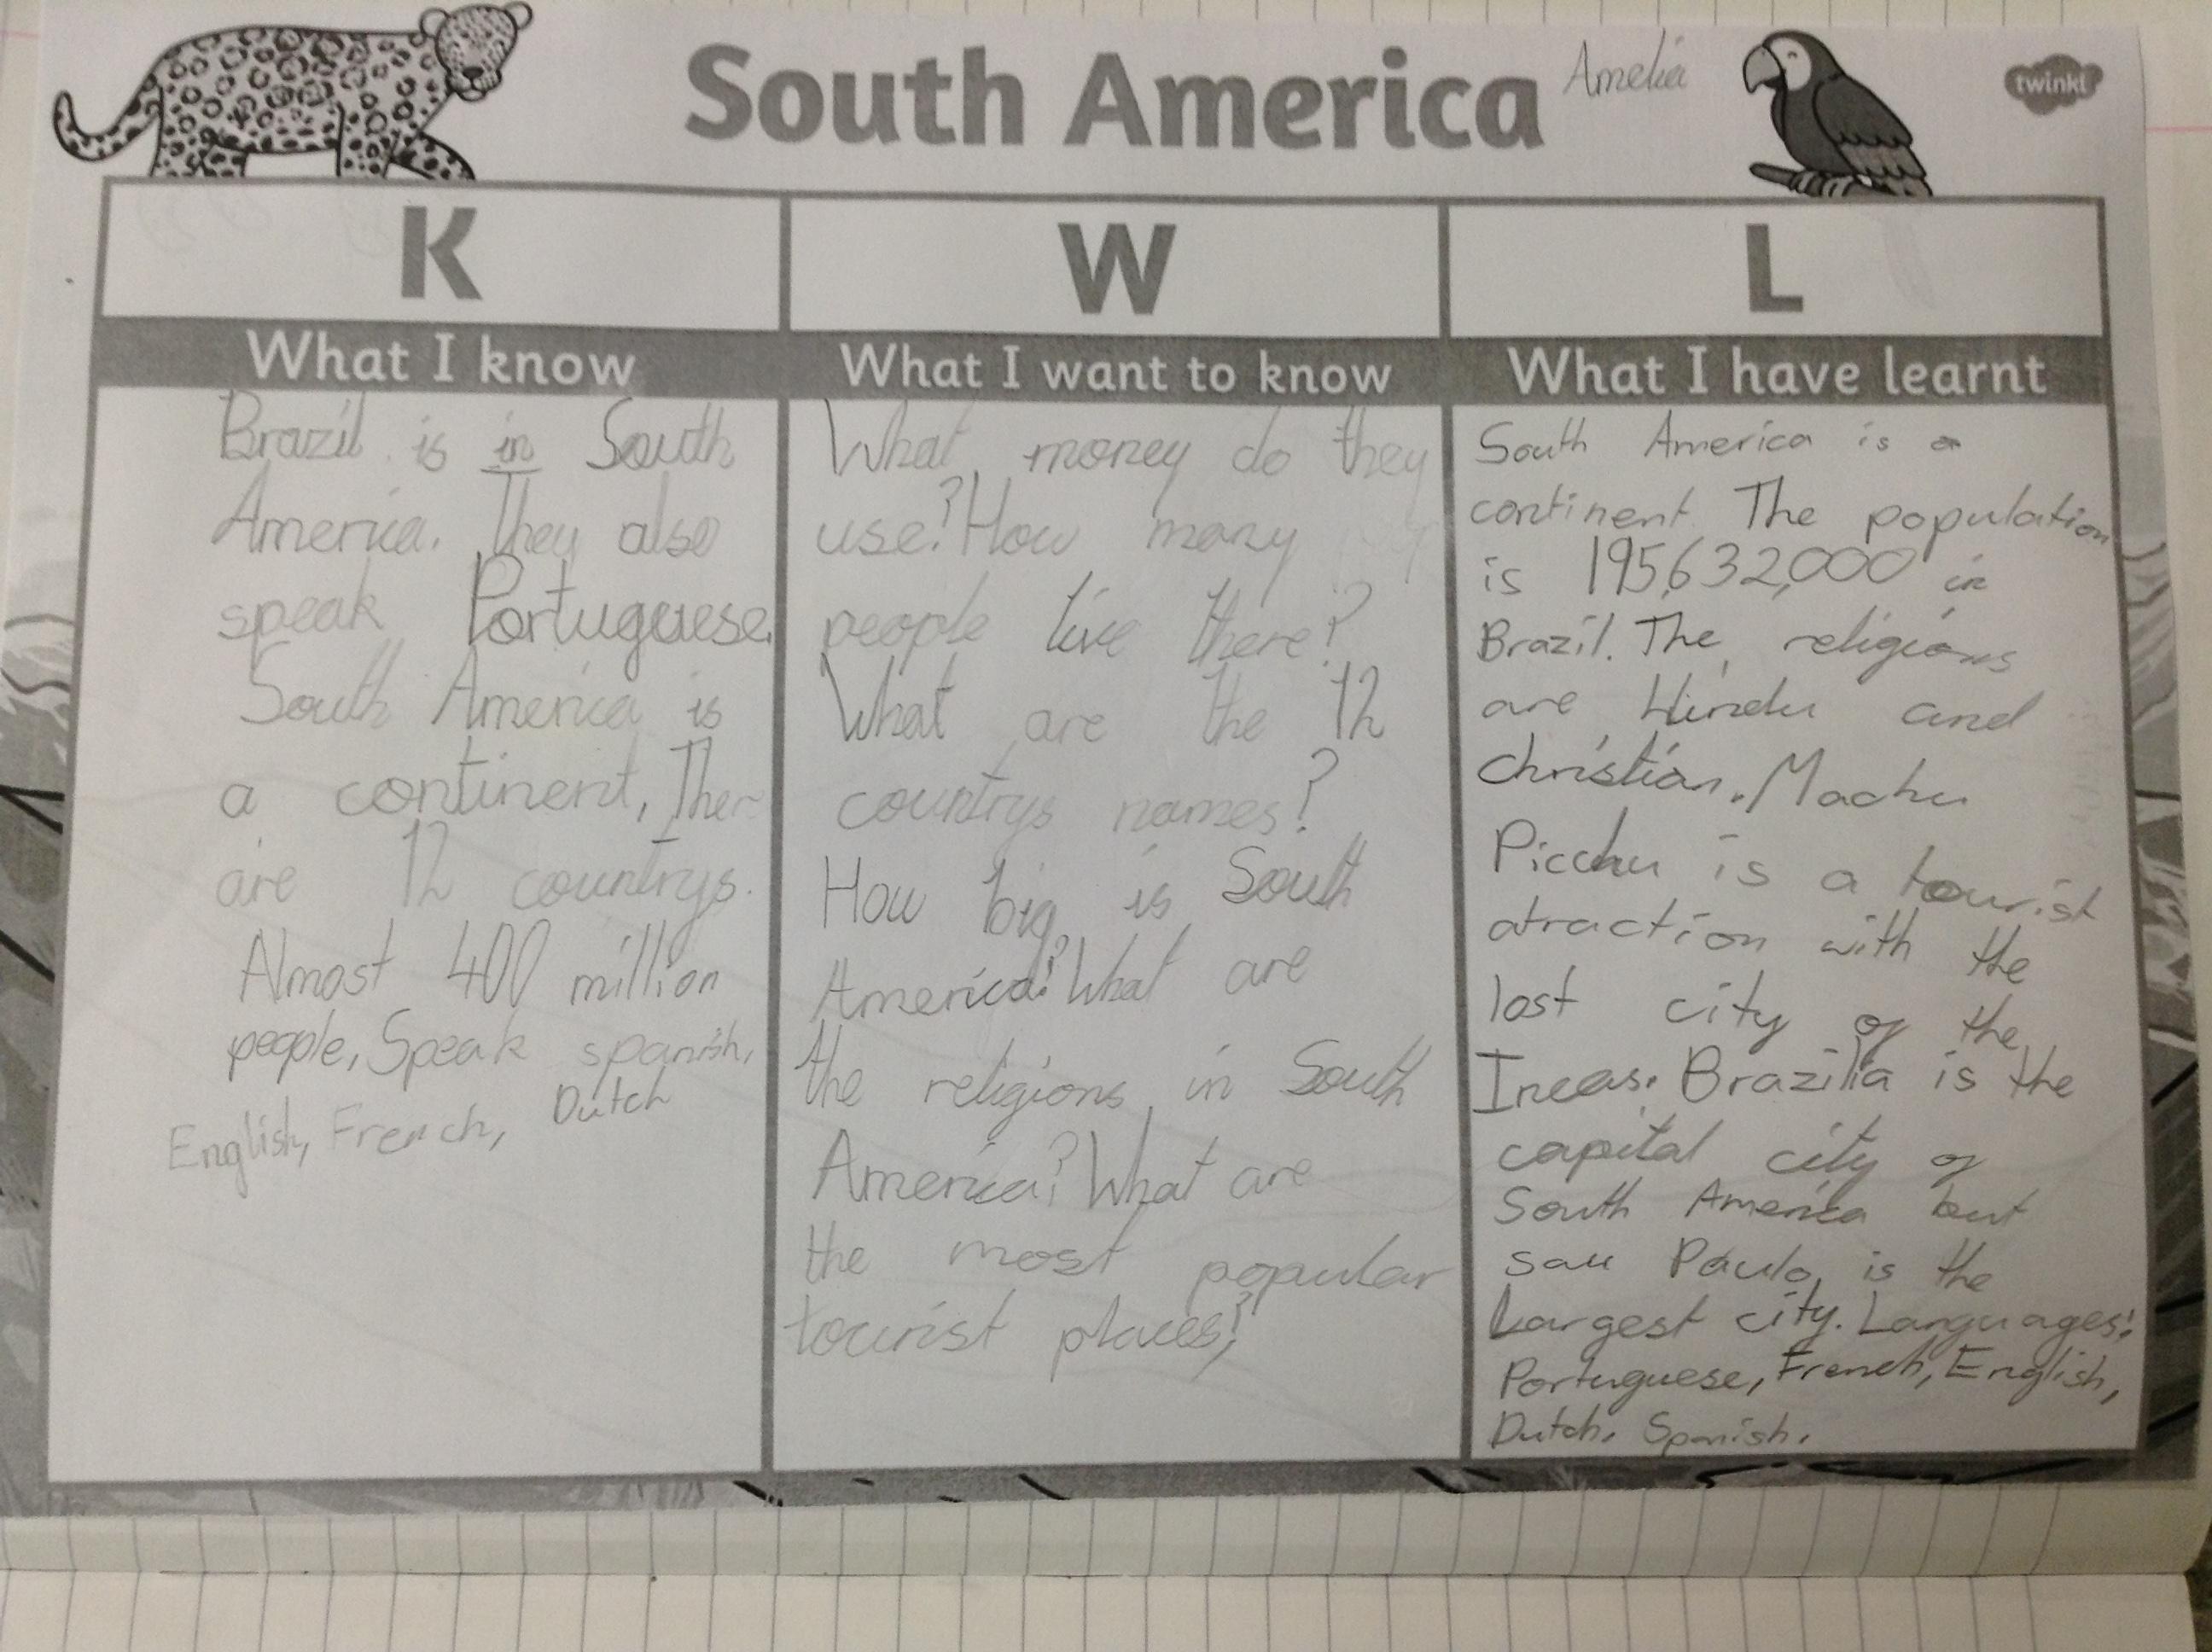 South America
Amelia
twinkl
K
What I know
Brazil is in South
America. They also
speak Portuguese.
South America is
a continent, Ther
are 12 countrys.
Almost 400 million
people, Speak spanish,
English, French, Dutch
W
What I want to know
What money do they
use? How many
people live there?
What are the 12
countrys names?
How big is South
America? What are
the religions in South
America? What are
the most popular
tourist places?
L
What I have learnt
South America is a
continent. The population
is 195,632,000 in
Brazil. The religions
are Hindu and
christian. Machu
Picchu is a tourist
atraction with the
lost city of the
Incas. Brazilia is the
capital city of
South America but
sau Paulo, is the
Largest city. Languages:
Portuguese, French, English,
Dutch, Spanish.